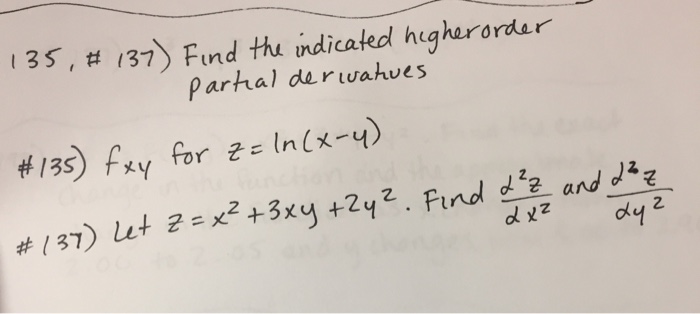 135, # 137) Find the indicated higher order
partial derivatives
#135) fxy for z = ln(x-y)
#137) Let z = x² + 3xy + 2y². Find d²z/dx² and d²z/dy²